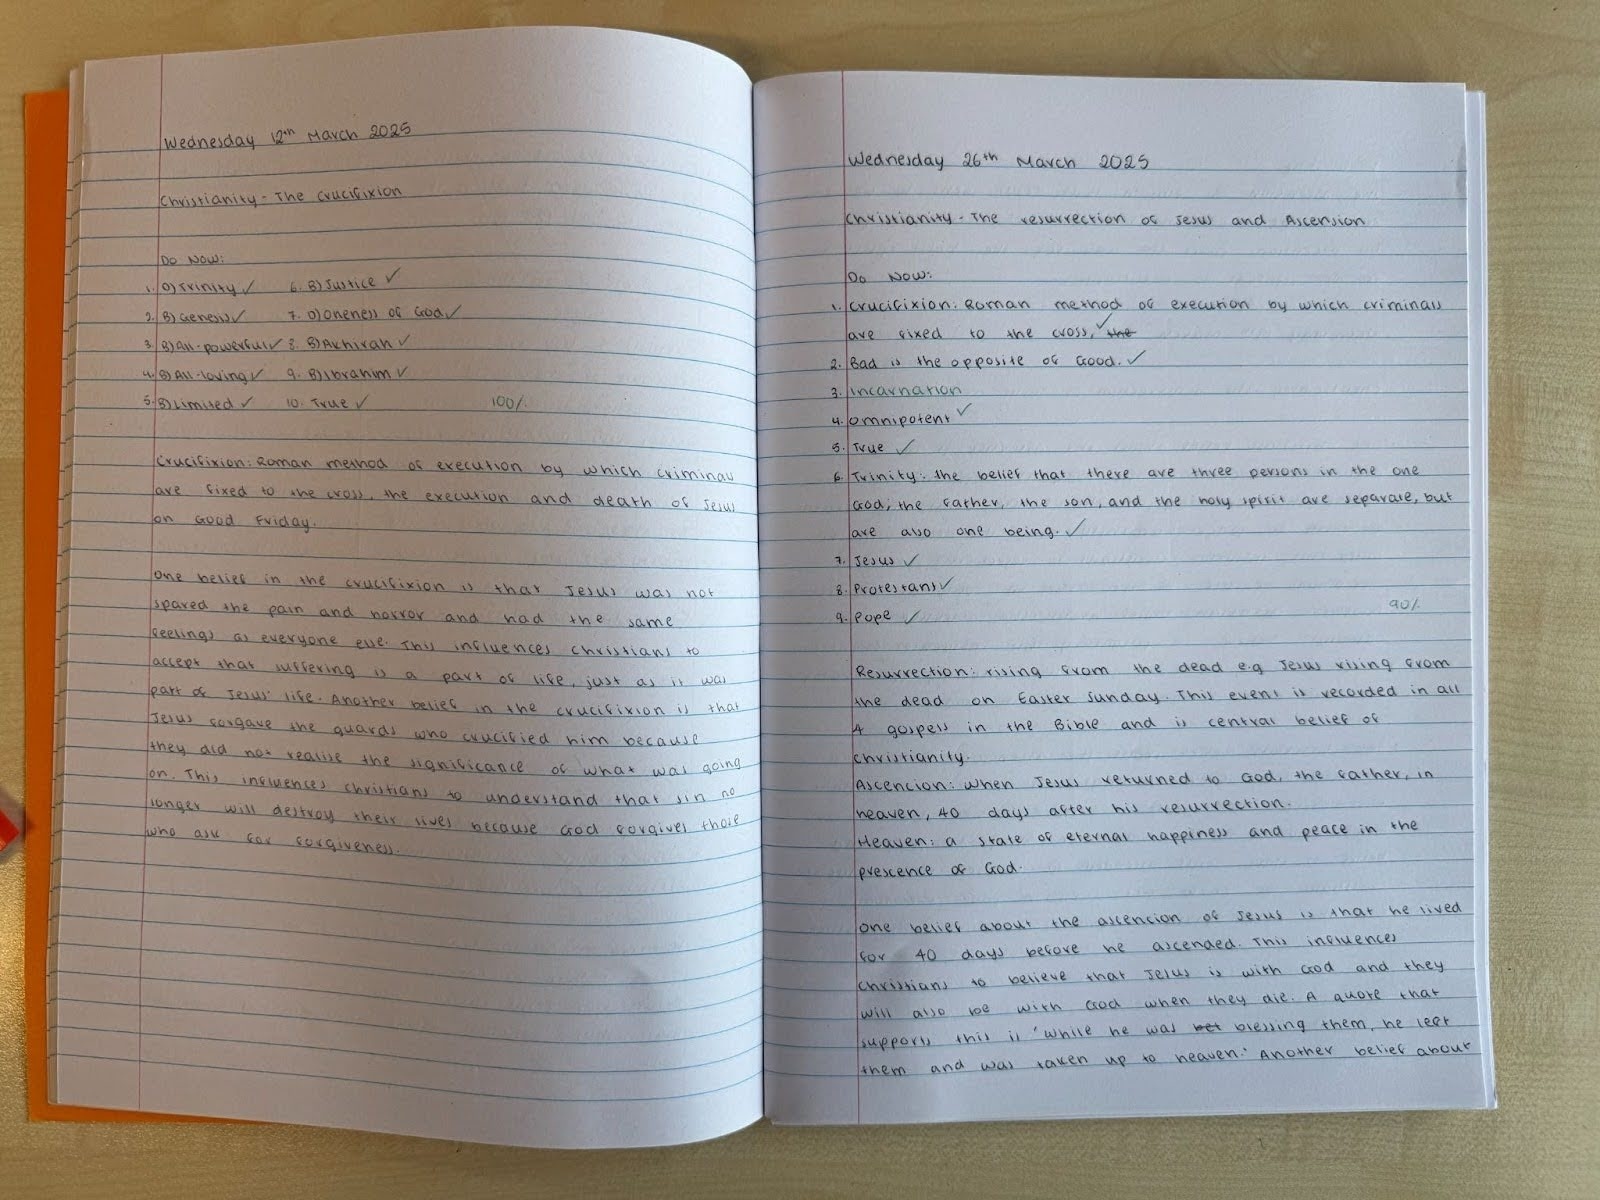 Wednesday 12th March 2025
Christianity - The Crucifixion
Do Now:
1. D) Trinity ✓ 6. B) Justice ✓
2. B) Genesis ✓ 7. D) Oneness of God ✓
3. B) All-powerful ✓ 8. B) Akhirah ✓
4. B) All-loving ✓ 9. B) Ibrahim ✓
5. B) Limited ✓ 10. True ✓ 100%
Crucifixion: Roman method of execution by which criminals
are fixed to the cross, the execution and death of Jesus
on Good Friday.
One belief in the crucifixion is that Jesus was not
spared the pain and horror and had the same
feelings as everyone else. This influences Christians to
accept that suffering is a part of life, just as it was
part of Jesus' life. Another belief in the crucifixion is that
Jesus forgave the guards who crucified him because
they did not realise the significance of what was going
on. This influences Christians to understand that sin no
longer will destroy their lives because God forgives those
who ask for forgiveness.
Wednesday 26th March 2025
Christianity - The resurrection of Jesus and Ascension
Do Now:
1. Crucifixion: Roman method of execution by which criminals
are fixed to the cross, ✓ the
2. Bad is the opposite of Good. ✓
3. Incarnation
4. Omnipotent ✓
5. True ✓
6. Trinity: the belief that there are three persons in the one
God; the father, the son, and the holy spirit are separate, but
are also one being. ✓
7. Jesus ✓
8. Protestans ✓
9. Pope ✓ 90%
Resurrection: rising from the dead e.g Jesus rising from
the dead on Easter Sunday. This event is recorded in all
4 gospels in the Bible and is central belief of
christianity.
Ascencion: When Jesus returned to God, the father, in
heaven, 40 days after his resurrection.
Heaven: a state of eternal happiness and peace in the
prescence of God.
One belief about the ascencion of Jesus is that he lived
for 40 days before he ascended. This influences
Christians to believe that Jesus is with God and they
will also be with God when they die. A quote that
supports this is 'while he was bet blessing them, he left
them and was taken up to heaven.' Another belief about